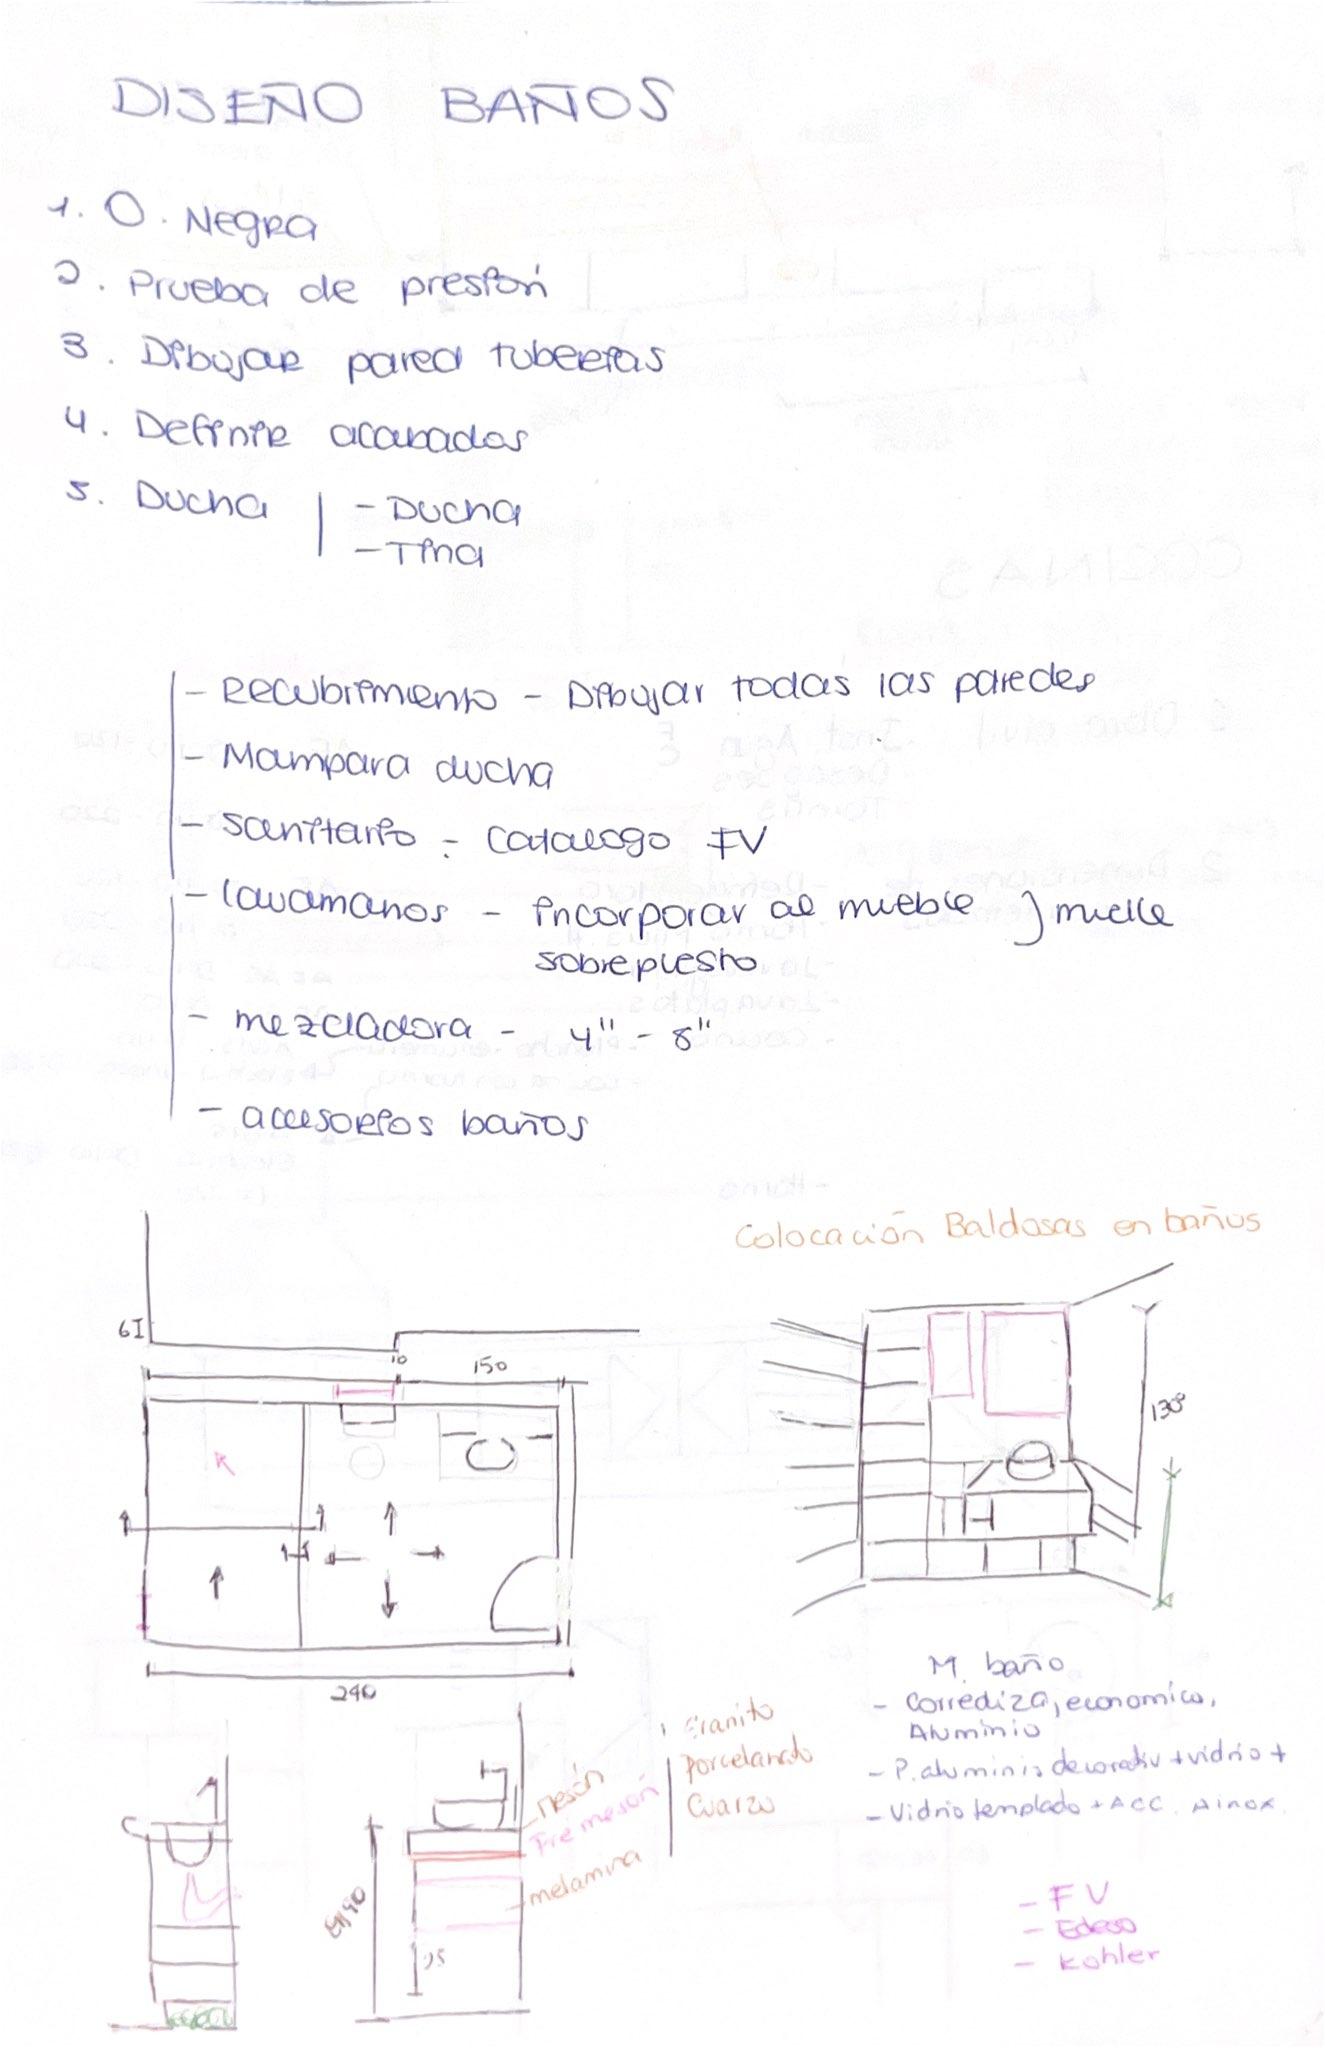 DISEÑO BAÑOS
1. O. Negra
2. Prueba de presión
3. Dibujar pared tuberias
4. Definir acabados
5. Ducha | - Ducha
- Tina
- Recubrimiento - Dibujar todas las paredes
- Mampara ducha
- Sanitario - Catalogo FV
- lavamanos - incorporar al mueble } mueble
sobrepuesto
- mezcladora - 4" - 8"
- accesorios baños
Colocación Baldosas en baños
10
150
130
240
M. baño
- Corrediza, economico,
Aluminio
- P. aluminio decorativo + vidrio +
- Vidrio templado + ACC. Ainox.
Granito
Porcelanato
Cuarzo
mesón
Fre mesón
melamina
- FV
- Edesa
- Kohler